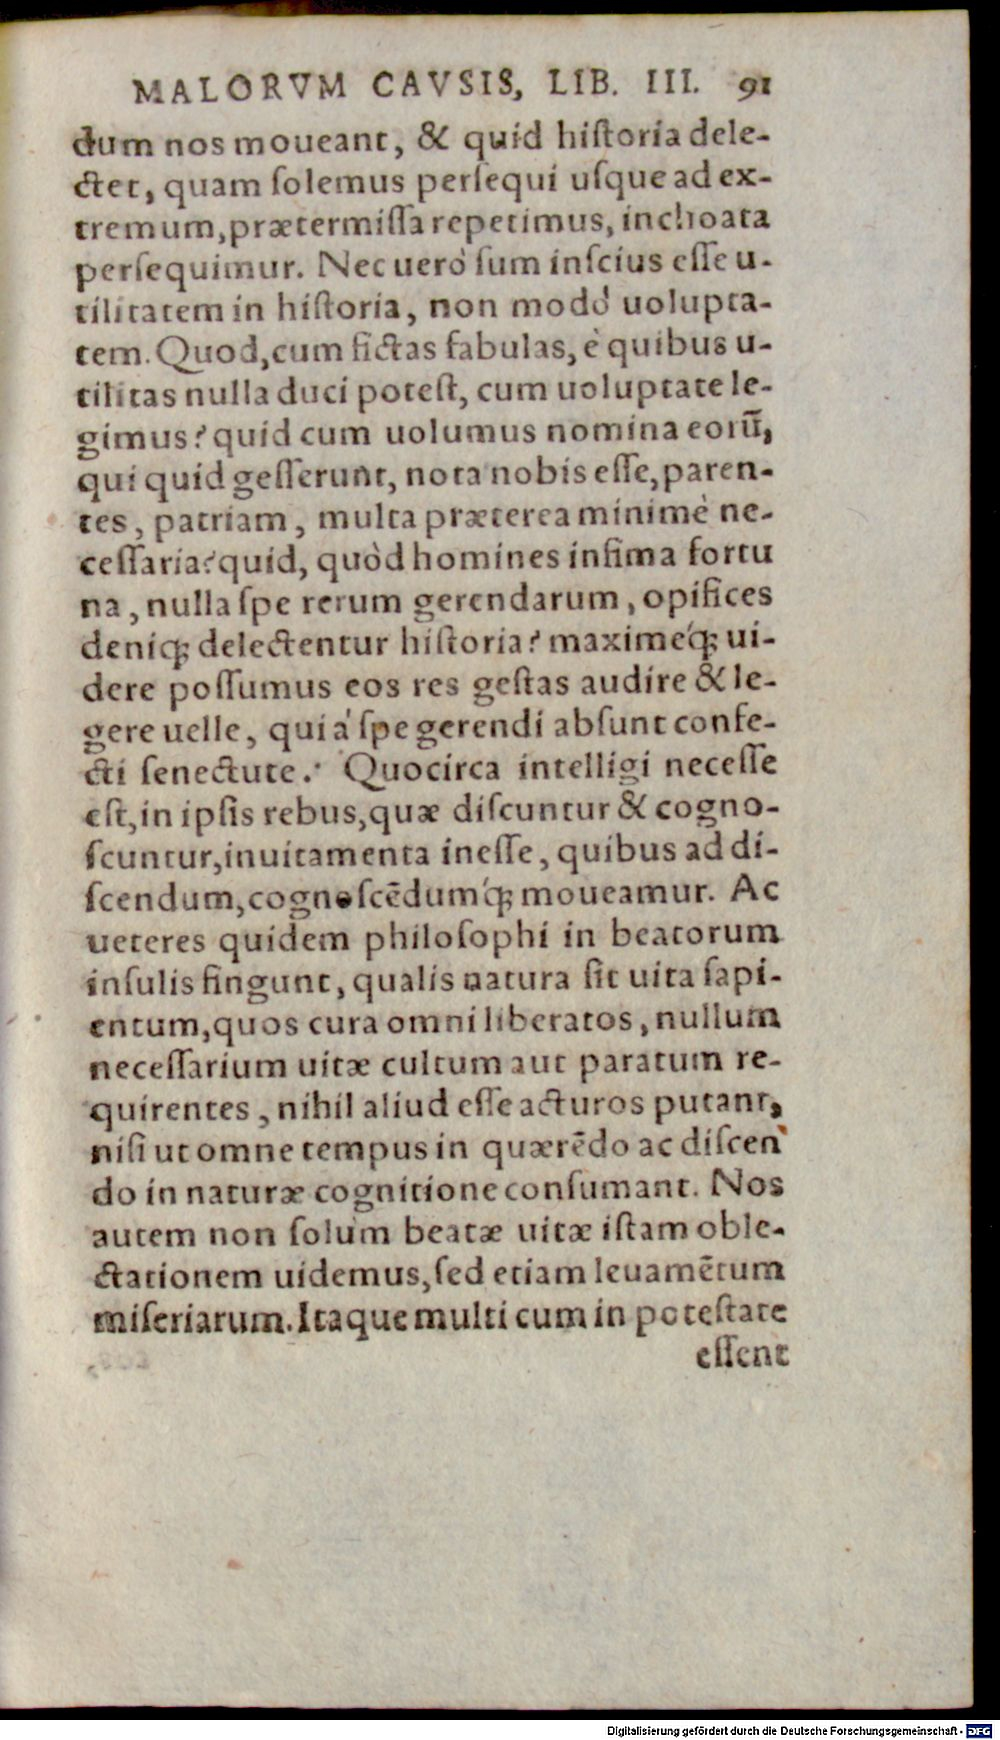 MALORVM CAVSIS, LIB. III. 91
dum nos moueant, & quid hiſtoria dele-
ctet, quam ſolemus perſequi uſque ad ex-
tremum, prætermiſſa repetimus, inchoata
perſequimur. Nec uerò ſum inſcius eſſe u-
tilitatem in hiſtoria, non modò uolupta-
tem. Quod, cum fictas fabulas, è quibus u-
tilitas nulla duci poteſt, cum uoluptate le-
gimus? quid cum uolumus nomina eorū,
qui quid geſſerunt, nota nobis eſſe, paren-
tes, patriam, multa præterea minimè ne-
ceſſaria? quid, quòd homines infima fortu
na, nulla ſpe rerum gerendarum, opifices
deniq́; delectentur hiſtoria? maximeq́; ui-
dere poſſumus eos res geſtas audire & le-
gere uelle, qui à ſpe gerendi abſunt confe-
cti ſenectute. Quocirca intelligi neceſſe
eſt, in ipſis rebus, quæ diſcuntur & cogno-
ſcuntur, inuitamenta ineſſe, quibus ad di-
ſcendum, cognoſcēdumq́; moueamur. Ac
ueteres quidem philoſophi in beatorum
inſulis fingunt, qualis natura ſit uita ſapi-
entum, quos cura omni liberatos, nullum
neceſſarium uitæ cultum aut paratum re-
quirentes, nihil aliud eſſe acturos putant,
niſi ut omne tempus in quærēdo ac diſcen
do in naturæ cognitione conſumant. Nos
autem non ſolùm beatæ uitæ iſtam oble-
ctationem uidemus, ſed etiam leuamētum
miſeriarum. Itaque multi cum in poteſtate
eſſent
Digitalisierung gefördert durch die Deutsche Forschungsgemeinschaft - DFG